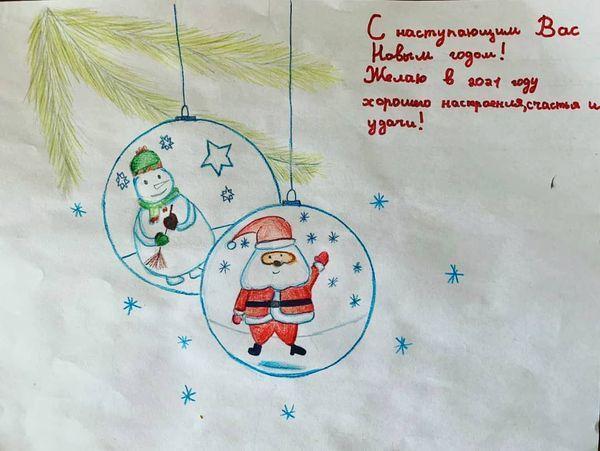 С наступающим Вас
Новым годом!
Желаю в 2021 году
хорошио настроения,счастья и
удачи!